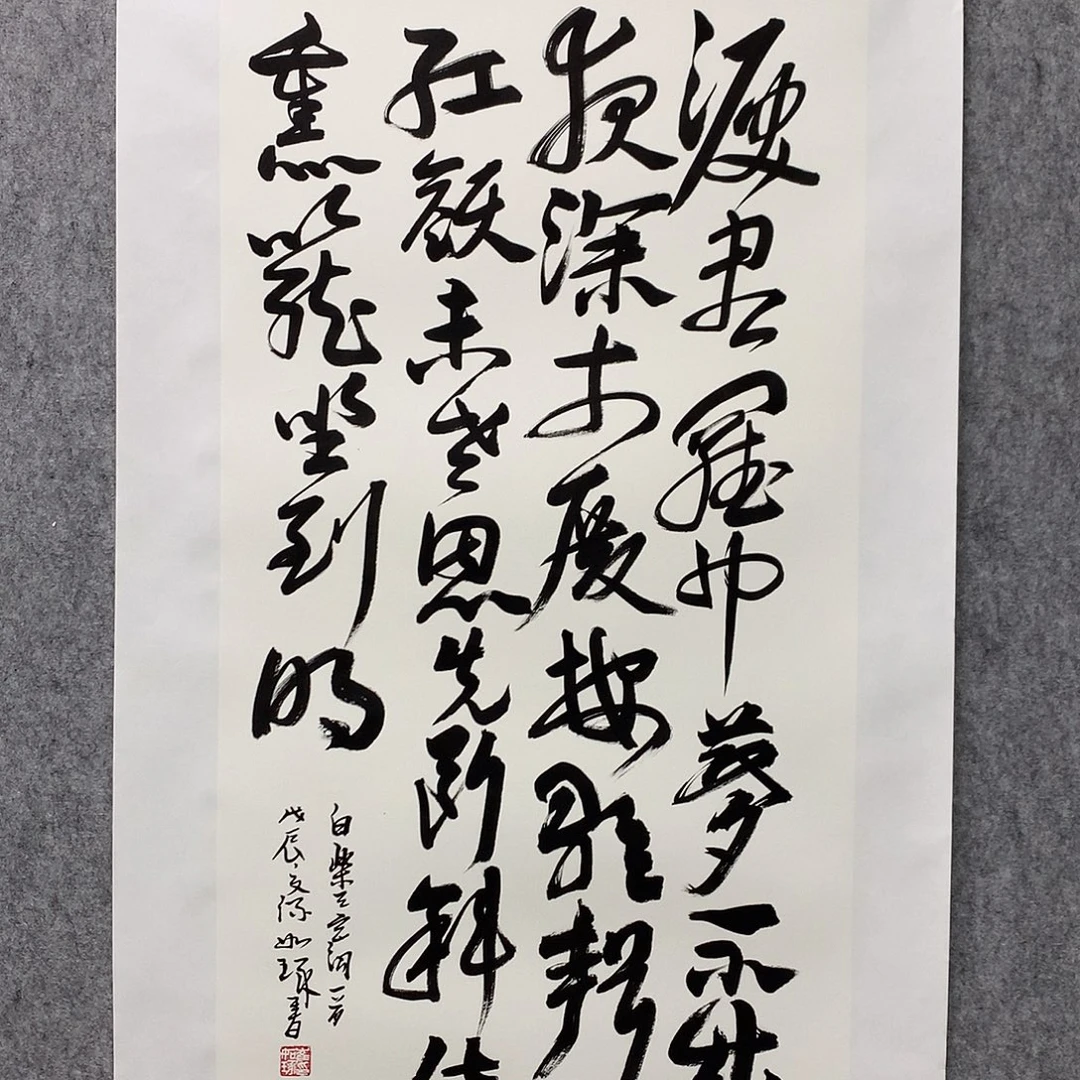 淚盡羅巾夢不成
夜深前殿按歌聲
紅顏未老恩先斷斜倚
熏籠坐到明
白樂天宮詞一首
戊辰 如琢書